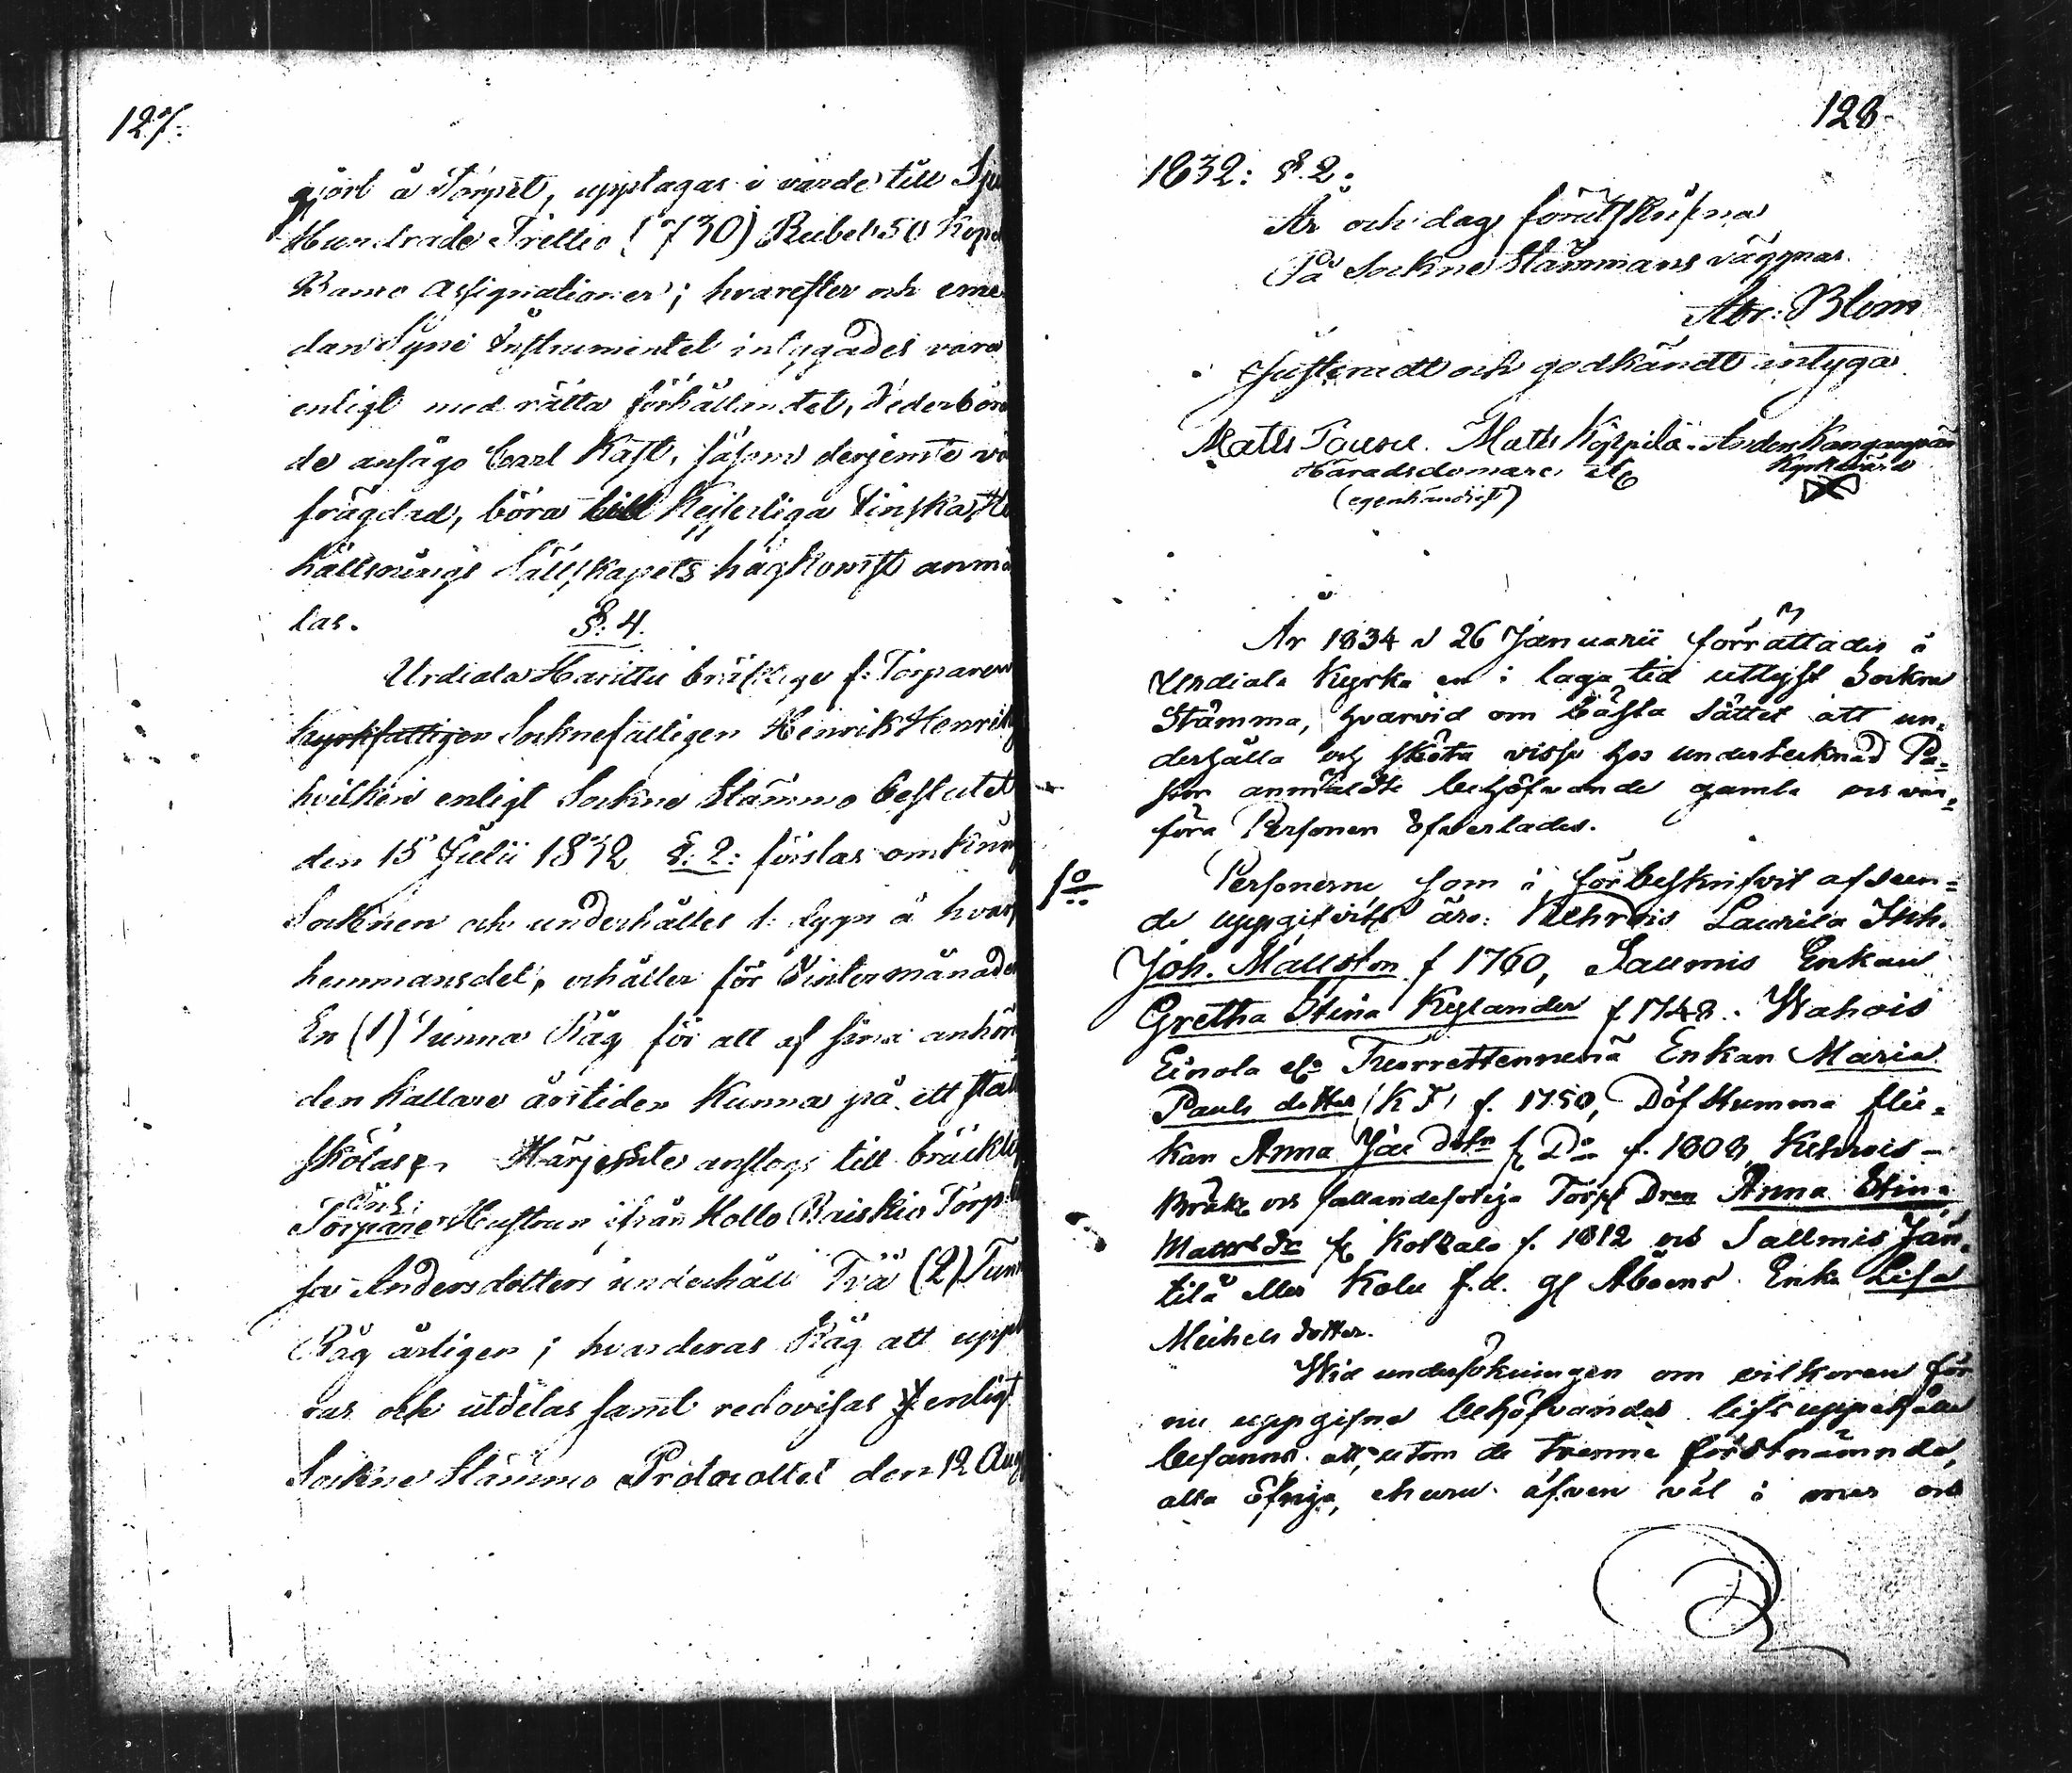 127.
gjort å Torpet, upptagas i värde till Sju
Hundrade Trettio (730) Rubel 50 Kop
Banco Assignationer; hvarefter och eme
dan Syne Instrumentet intygades vara
enligt med rätta förhållandet, Vederbör
de ansågo Carl Kast, såsom derjemte vä
frägdad, böra till Kejserliga Finska H
hållnings Sällskapets hågkomst anmä
las.
§. 4.
Urdiala Harittu bräcklige f. Torparen
kyrkfattigen Socknefattigen Henrik Henriks
hvilken enligt Sockne Stämmo beslutet
den 15 Julii 1832 §. 2: förslas omkring
Socknen och underhålles 1 dygn å hvar
hemmansdel, erhåller för Vintermånader
En (1) Tunna Råg för att af sina anhör
den kallare årstiden kunna på ett stäl
skötas. Härjemte anslogs till bräckli
Enk:
Torpare Hustrun ifrån Hollo Raiskio Torp
Andersdotters underhåll Två (2) Tun
Råg årligen; hvarderas Råg att upp
ras och utdelas samt redovisas enligt
Sockne Stämmo Protocollet den 12 Aug
128
1832: §. 2:
År och dag förutskrifna
På Sockne Stämmans vägnar
Abr: Blom
Justeradt och godkändt intyga
Matts Matts Köpilä. Anders
Häradsdomare Kyrkvärd
(egenhändigt)
År 1834 d 26 Januarii förrättades i
Urdiala Kyrka en i laga tid utlyst Sockne
Stämma, hvarvid om bästa sättet att un=
derhålla och sköta vissa hos undertecknad Pa=
stor anmälde behöfvande gamla och van=
föra Personer öfverlades.
1o Personerne som i förbeskrifvit afseen=
de uppgifvits äro: Kehrois Laurila Inh.
Joh. Mattsson f 1760, Salmis Enkan
Gretha Stina Kylander f. 1748. Wahois
Einola Enkan Maria
Pauls dotter f. 1750, Döfstumma flic=
kan Anna Jac dotr f. 1808, Kehrois
Bräkl och fallandesotiga Torp Dren Anna Stina
Matts dr f. 1812 och Salmis Jän=
tilä eller Kolu f.d. Åboens Enka Lisa
Michels dotter.
Wid undersökningen om vilkoren för
nu uppgifne behöfvandes lifs uppehälle
befanns att, utom de trenne förstnämnda,
alla öfriga, ehuru äfven väl i mer och